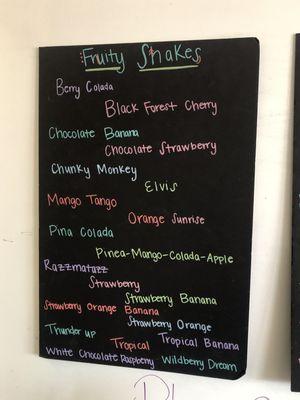 Fruity Shakes
Berry Colada
Black Forest Cherry
Chocolate Banana
Chocolate Strawberry
Chunky Monkey
Elvis
Mango Tango
Orange Sunrise
Pina Colada
Pinea-Mango-Colada-Apple
Razzmatazz
Strawberry
Strawberry Banana
Strawberry Orange Banana
Strawberry Orange
Thunder up
Tropical
Tropical Banana
White Chocolate Raspberry
Wildberry Dream